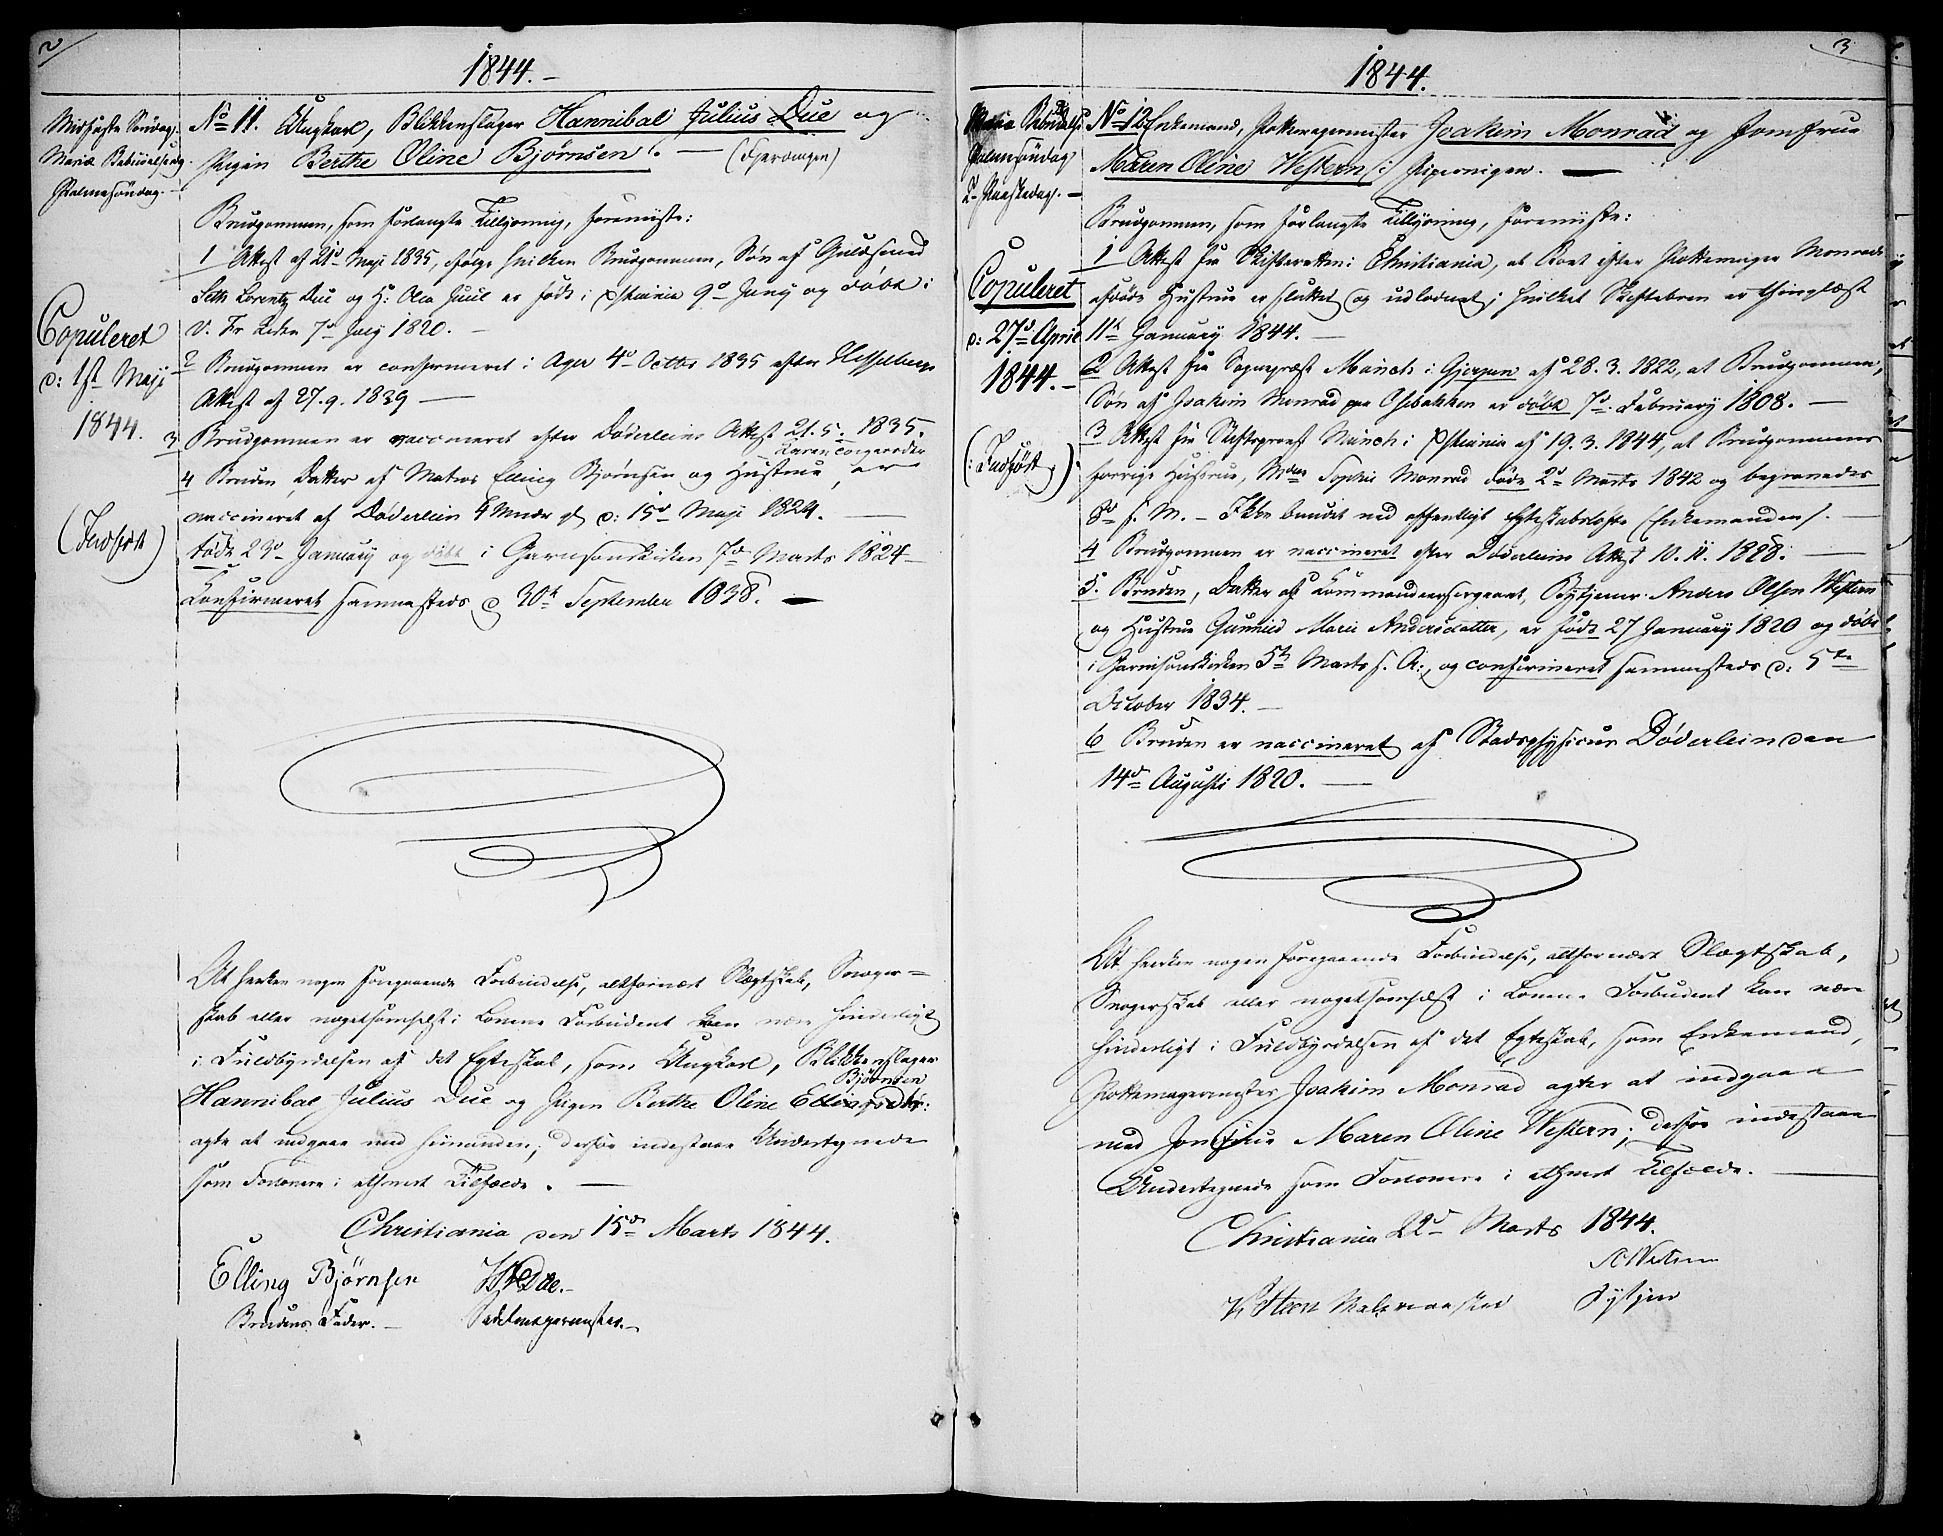 2
1844.-
Midfaste Søndag.
Mariæ Bebudelsesdag.
Palmesøndag.
No 11. Ungkarl, Blikkenslager Hannibal Julius Due og
Pigen Berthe Oline Bjørnsen. — (Fjerdingen)
Brudgommen, som forlangte Tillysning, foreviiste:
1 Attest af 21d Maji 1835, ifølge hvilken Brudgommen, Søn af Guldsmed
Seth Lorentz Due og H: Olea Juul er født i Xstiania 9d Juny og døbt i
V. Fr Kirke 7d July 1820. —
2 Brudgommen er confirmeret i Ager 4d Octbr 1835 efter Hesselbergs
Attest af 27.9.1839 —
3 Brudgommen er vaccineret efter Døderleins Attest 21.5.1835.
Karen Torgersdtr
4 Bruden, Datter af Matros Elling Bjørnsen og Hustrue, er
vaccineret af Døderlein 4 Mndr gl d: 15d Maji 1824. —
født 23d January og døbt i Garnisonskirken 7d Marts 1824 —
Confirmeret sammesteds d 30t September 1838. —
Copuleret
d: 1st Maji
1844.
(Indført)
At hverken nogen foregaaende Forbindelse, altfornært Slægtskab, Svoger=
skab eller nogetsomhelst i Lovene Forbudent kan være hinderligt
i Fuldbyrdelsen af det Egteskab, som Ungkarl, Blikkenslager
Bjørnsen
Hannibal Julius Due og Pigen Berthe Oline Ellingsdtr:
agte at indgaae med hinanden; derfor indestaae Undertegnede
som Forlovere i ethvert Tilfælde. —
Christiania den 15de Marts 1844.
Elling Bjørnsen Due.-
Brudens Fader. — Sadelmagermester. —
3
1844.
Mariæ Bebudelse
Palmesøndag
2- Paaskedag. —
No 12 Enkemand, Pottemagermester Joakim Monrad og Jomfrue
Maren Oline Western /: Pipervigen. —
Brudgommen, som forlangte Tillysning, foreviiste:
1 Attest fra Skifteretten i Christiania, at Boet efter Pottemager Monrads
afdøde Hustrue er sluttet og udloddet; hvilket Skiftebrev er thinglæst
11t January 1844. —
2 Attest fra Sognepræst Münch i Gjerpen af 28.3.1822, at Brudgommen,
Søn af Joakim Monrad paa Osebakken er døbt 7d February 1808. —
3 Attest fra Stiftsprovst Münch i Xstiania af 19.3.1844, at Brudgommens
forrige Hustrue, Mdm Sophie Monrad døde 2d Marts 1842 og begravedes
8d s. M. — Ikke bundet ved offentligt Egteskabsløfte (Enkemanden). —
4 Brudgommen er vaccineret efter Døderleins Attest 10.11.1828. —
5. Bruden, Datter af Commandeersergeant, Bytjener Anders Olsen Western
og Hustrue Gunnild Marie Andersdatter, er født 27 January 1820 og døbt
i Garnisonskirken 5t Marts s. A:, og confirmeret sammesteds d: 5te
October 1834. —
6 Bruden er vaccineret af Stadsphysicus Døderlein den
14d Augusti 1820. —
Copuleret
d: 27d April
1844. -
(: Indført :)
At hverken nogen foregaaende Forbindelse, altfornært Slægtskab,
Svogerskab eller nogetsomhelst i Lovene Forbudent kan være
hinderligt i Fuldbyrdelsen af det Egteskab, som Enkemand,
Pottemagermester Joakim Monrad agter at indgaae
med Jomfrue Maren Oline Western; derfor indestaae
Undertegnede som Forlovere i ethvert Tilfælde. —
Christiania 22d Marts 1844.
A Western
Bytjener